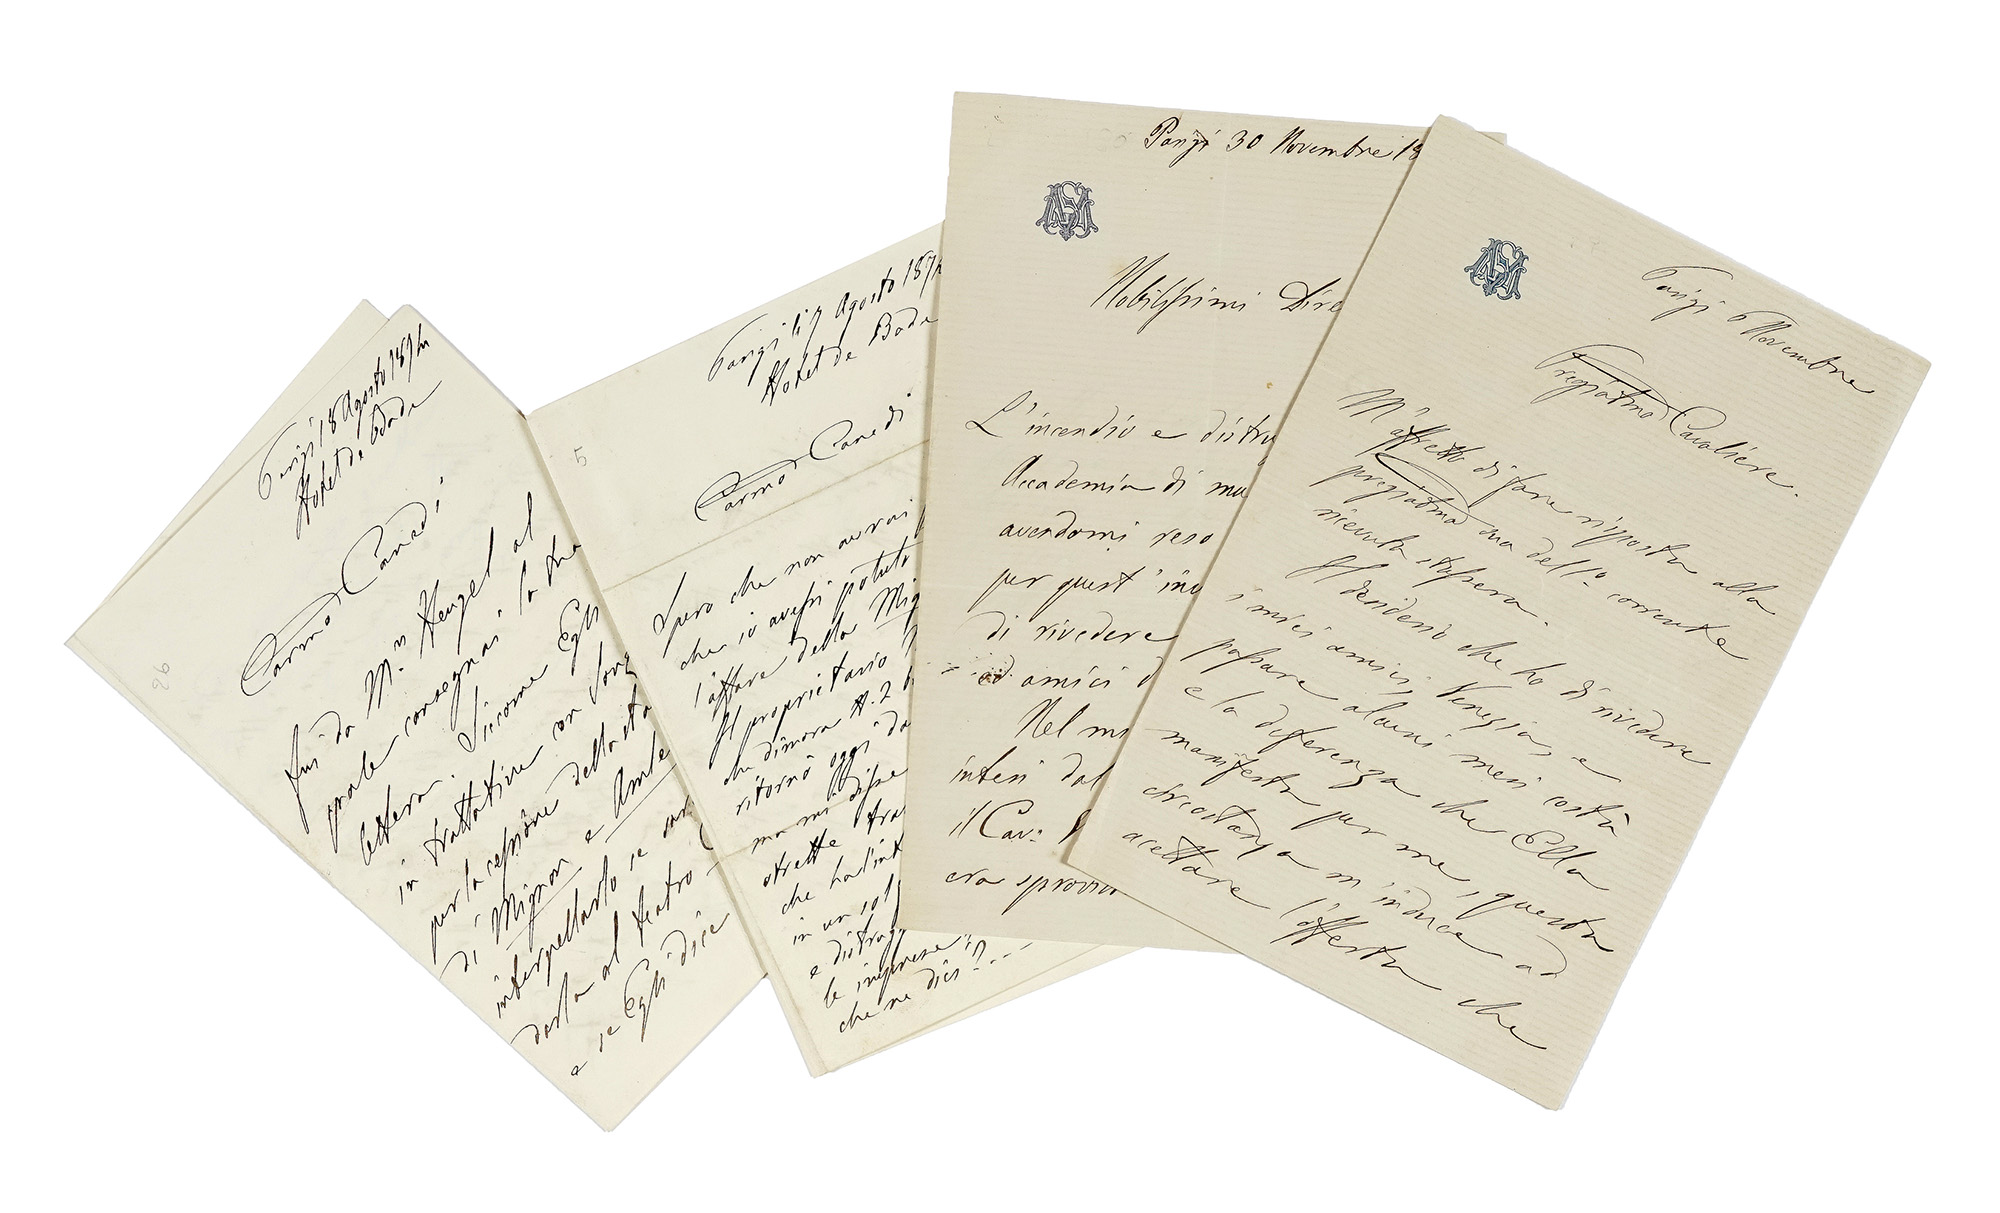 Parigi 18 Agosto 187
Hotel de Bade
Carmo Canedi
fui da Mr. Heugel al
quale consegnai la tua
lettera. Siccome Egli
in trattative con Sonz
per la cessione della sta
di Mignon e Amle
interpellarlo se
darla al teatro
e se Egli dice
26
Parigi li 9 Agosto 187
Hotel de Bade
5
Carmo Canedi
Spero che non avrai
che io avessi potuto
l'affare della Mig
Il proprietario
che dimora N. 2
ritornò oggi da
ma mi disse
strette tra
che ha l'int
in un sol
e distrugg
le imprese
che ne dici?...
Parigi 30 Novembre 18
MS
Nobilissimi Dire
L'incendio e distru
Accademia di mu
avendomi reso
per quest'inv
di rivedere
ed amici
Nel mi
intesi dal
il Cav.
era sprovvi
MS
Parigi 6 Novembre
Pregiatmo Cavaliére.
M'affretto di fare risposta alla
pregiatma sua dell 1o corrente
ricevuta stassera.
Il desiderio che ho di rivedere
i miei amici, Venezia, e
passare alcuni mesi costà
e la diferenza che Ella
manifesta per me, questa
circostanza m'induce ad
acettare l'offerta che